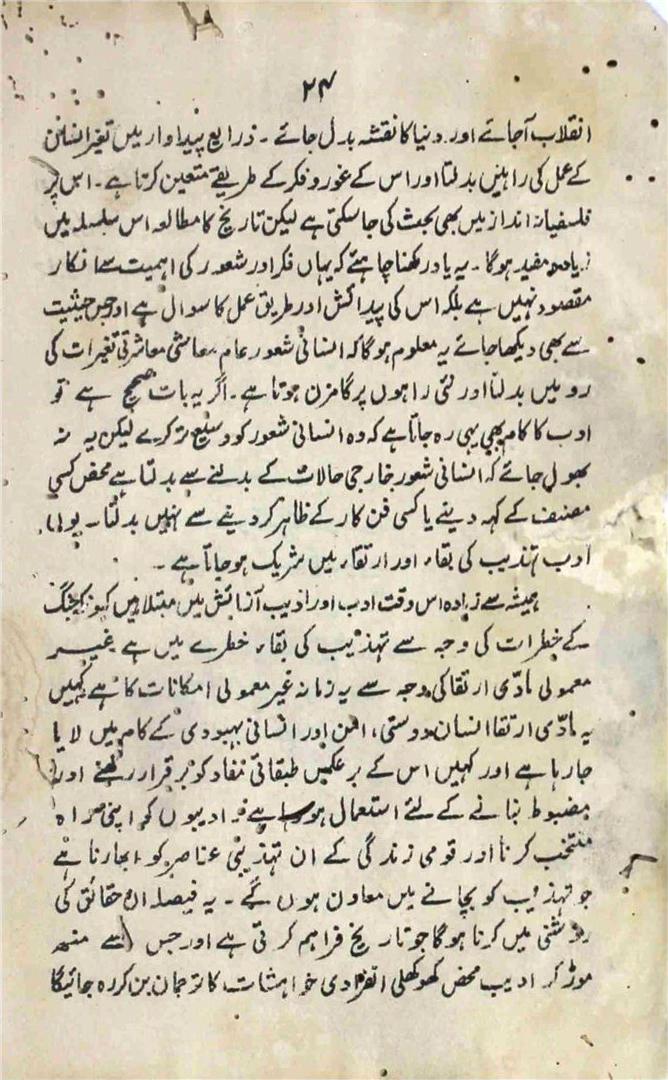 ۲۴
انقلاب آجائے اور دنیا کا نقشہ بدل جائے ۔ ذرایع پیداوار میں تغیر انسانوں
کے عمل کی راہیں بدلتا اور اس کے غور و فکر کے طریقے متعین کرتا ہے ۔ اس پر
فلسفیانہ انداز میں بھی بحث کی جا سکتی ہے لیکن تاریخ کا مطالعہ اس سلسلہ میں
زیادہ مفید ہوگا ۔ یہ یاد رکھنا چاہئے کہ یہاں فکر اور شعور کی اہمیت سے انکار
مقصود نہیں ہے بلکہ اس کی پیدائش اور طریق عمل کا سوال ہے اور جس حیثیت
سے بھی دیکھا جائے یہ معلوم ہوگا کہ انسانی شعور عام معاشی معاشرتی تغیرات کی
رو میں بدلتا اور نئی راہوں پر گامزن ہوتا ہے ۔ اگر یہ بات صحیح ہے تو
ادب کا کام بھی یہی رہ جاتا ہے کہ وہ انسانی شعور کو وسیع تر کرے لیکن یہ نہ
بھول جائے کہ انسانی شعور خارجی حالات کے بدلنے سے بدلتا ہے محض کسی
مصنف کے کہہ دینے یا کسی فن کار کے ظاہر کر دینے سے نہیں بدلتا ۔ یوں
ادب تہذیب کی بقاء اور ارتقاء میں شریک ہو جاتا ہے ۔
ہمیشہ سے زیادہ اس وقت ادب اور ادیب آزمائش میں مبتلا ہیں کیونکہ جنگ
کے خطرات کی وجہ سے تہذیب کی بقاء خطرے میں ہے غیر
معمولی مادّی ارتقا کی وجہ سے یہ زمانہ غیر معمولی امکانات کا ہے کہیں
یہ مادّی ارتقا انسان دوستی، امن اور انسانی بہبودی کے کام میں لایا
جا رہا ہے اور کہیں اس کے برعکس طبقاتی مفاد کو برقرار رکھنے اور
مضبوط بنانے کے لئے استعمال ہو رہا ہے ادیبوں کو اپنی راہ
منتخب کرنا اور قومی زندگی کے ان تہذیبی عناصر کو ابھارنا ہے
جو تہذیب کو بچانے میں معاون ہوں گے ۔ یہ فیصلہ ان حقائق کی
روشنی میں کرنا ہوگا جو تاریخ فراہم کرتی ہے اور جس سے منھ
موڑ کر ادیب محض کھوکھلی انفرادی خواہشات کا ترجمان بن کر رہ جائیگا